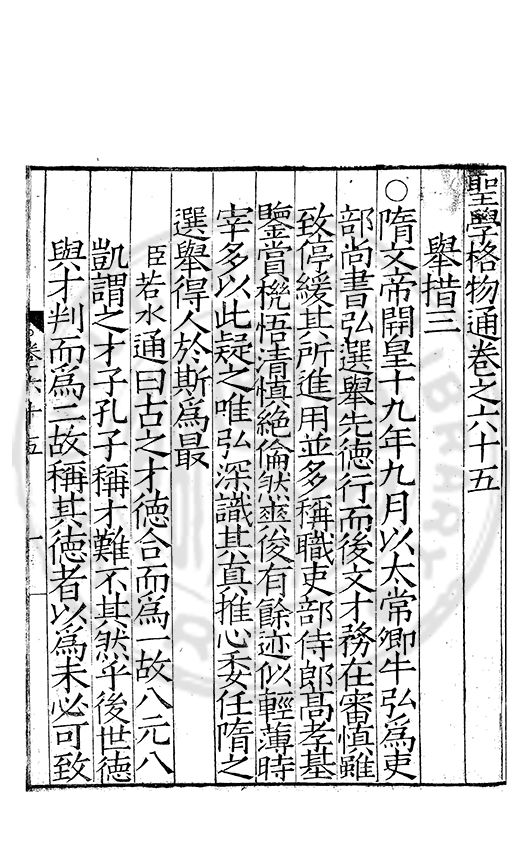 聖學格物通卷之六十五
舉措三
○隋文帝開皇十九年九月以太常卿牛弘爲吏
部尚書弘選舉先德行而後文才務在審慎雖
致停緩其所進用並多稱職吏部侍郎高孝基
鑒賞機悟清慎絕倫然爽俊有餘迹似輕薄時
宰多以此疑之唯弘深識其真推心委任隋之
選舉得人於斯爲最
臣若水通曰古之才德合而爲一故八元八
凱謂之才子孔子稱才難不其然乎後世德
與才判而爲二故稱其德者以爲未必可致
卷六十五 一